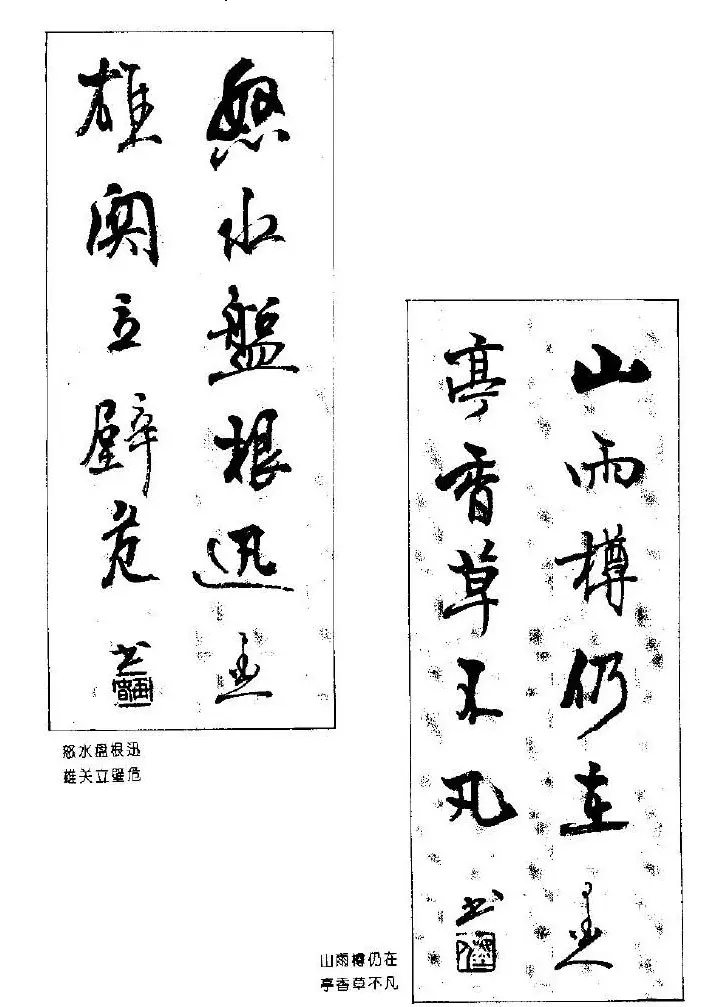 怒水盤根迅
雄関立壁危
书
怒水盘根迅
雄关立壁危
山雨樽仍在
亭香草不凡
书
山雨樽仍在
亭香草不凡